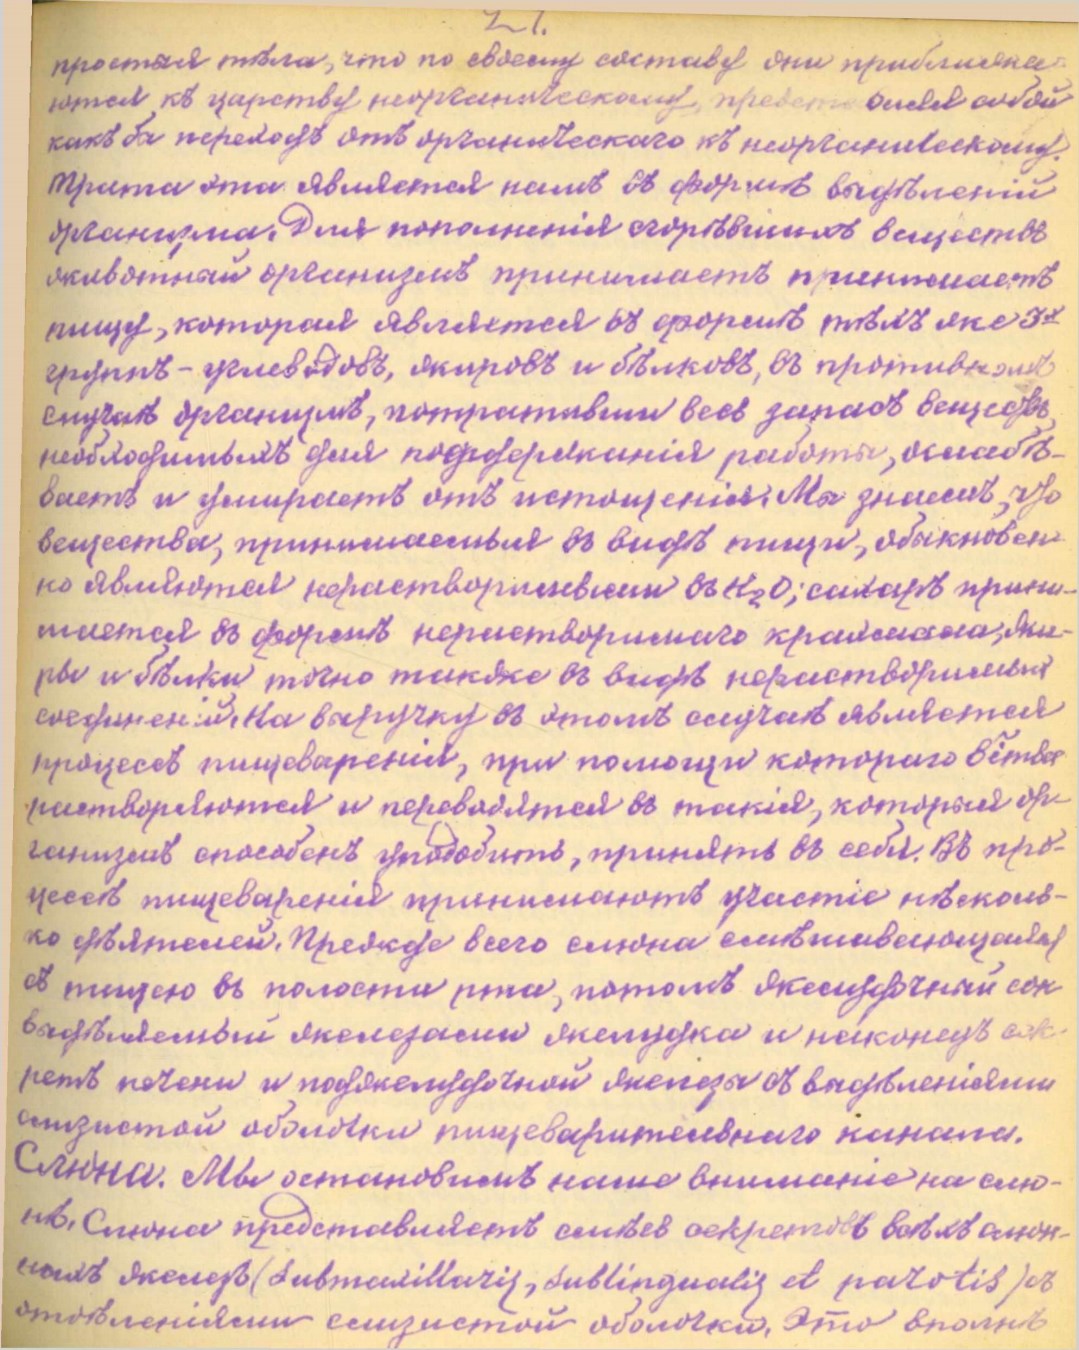 21.
простыя тѣла, что по своему составу они приближа-
ются къ царству неорганическому, представляя собой
какъ бы переходъ отъ органическаго къ неорганическому.
Трата эта является намъ въ формѣ выдѣленій
организма. Для пополненія сгорѣвшихъ веществъ
животный организмъ принимаетъ принимаетъ
пищу, которая является въ формѣ тѣхъ же 3х
группъ - углеводовъ, жировъ и бѣлковъ, въ противномъ
случаѣ организмъ, потративши весь запасъ веществъ
необходимыхъ для поддержанія работы, ослабѣ-
ваетъ и умираетъ отъ истощенія. Мы знаемъ, что
вещества, принимаемыя въ видѣ пищи, обыкновен-
но являются нерастворимыми въ H2O; сахаръ прини-
мается въ формѣ нерастворимаго крахмала, жи-
ры и бѣлки точно также въ видѣ нерастворимыхъ
соединеній. На выручку въ этомъ случаѣ является
процессъ пищеваренія, при помощи котораго в-ства
растворяются и переводятся въ такія, которыя ор-
ганизмъ способенъ уподобить, принять въ себя. Въ про-
цессѣ пищеваренія принимаютъ участіе нѣсколь-
ко дѣятелей. Прежде всего слюна смѣшивающаяся
съ пищею въ полости рта, потомъ желудочный сок
выдѣляемый железами желудка и наконецъ сек-
ретъ печени и поджелудочной железы съ выдѣленіями
слизистой оболочки пищеварительнаго канала.
Слюна. Мы остановимъ наше вниманіе на слю-
нѣ. Слюна представляетъ смѣсь секретовъ всѣхъ слюн-
ныхъ железъ (Submaxillaris, Sublingualis et parotis) съ
отдѣленіями слизистой оболочки. Это вполнѣ